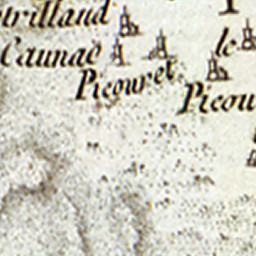 trilland
Caunac
le
Picouret
Picou